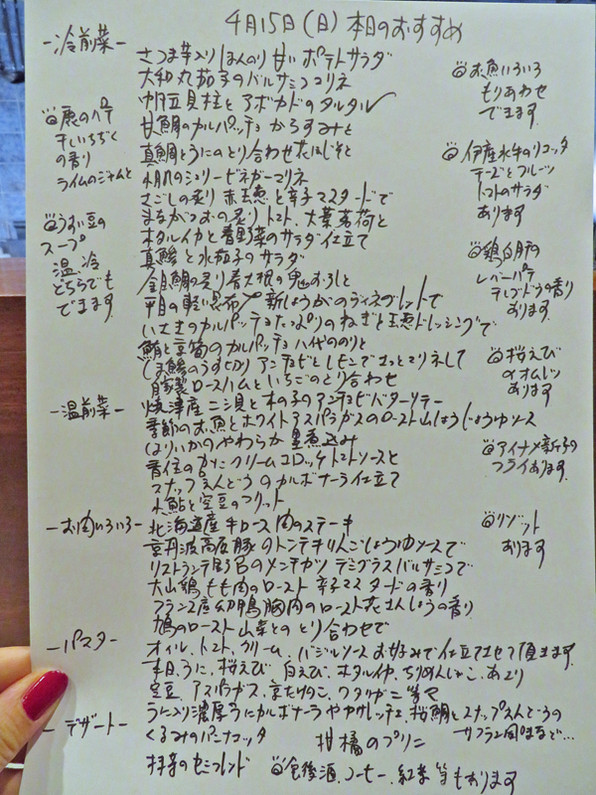 4月15日(日) 本日のおすすめ
-冷前菜-
さつま芋入り ほんのり甘いポテトサラダ
大和丸茄子のバルサミコマリネ
帆立貝柱とアボカドのタルタル
甘鯛のカルパッチョ からすみと
真鯛とうにのとり合わせ 花ほじそと
のシェリービネガーマリネ
さごしの炙り 赤玉葱と辛子マスタードで
まながつおの炙り トマト、大葉茗荷と
ホタルイカと春野菜のサラダ仕立て
真鯵と水茄子のサラダ
金目鯛の炙り 春大根の鬼おろしと
平目の軽い昆布〆 新しょうがのヴィネグレットで
いさきのカルパッチョ たっぷりのねぎと玉葱ドレッシングで
鮪と京筍のカルパッチョ 八代ののりと
しま鯵のうすぎり アンチョビとレモンでさっとマリネして
自家製ロースハムといちごのとり合わせ
鹿のパテ
干しいちじく
の香り
ライムのジャムと
うすい豆の
スープ
温、冷
どちらでも
できます
お魚いろいろ
もりあわせ
できます
伊産水牛のリコッタ
チーズとフルーツ
トマトのサラダ
あります
鶏白肝の
レバーパテ
あります
桜えび
のオムレツ
あります
アイナメ新子の
フライあります
リゾット
あります
-温前菜-
焼津産ニシ貝と木の子のアンチョビバターソテー
季節のお魚とホワイトアスパラガスのロースト 山しょうじょうゆソース
はりいかのやわらか墨煮込み
香住のかにクリームコロッケ トマトソースと
スナップえんどうのカルボナーラ仕立て
氷鮎と空豆のフリット
-お肉いろいろ-
北海道産牛ロース肉のステーキ
京丹波高原豚のトンテキ りんごしょうゆソースで
リストランテのメンチカツ デミグラスバルサミコで
大山鶏もも肉のロースト 辛子マスタードの香り
フランス産幼鴨胸肉のロースト 花さんしょうの香り
鳩のロースト 山菜とのとり合わせで
-パスタ-
オイル、トマト、クリーム、バジルソース お好みで仕立てさせて頂きます
本日、うに、桜えび、白えび、ホタルイカ、ちりめんじゃこ、あさり
空豆、アスパラガス、京たけのこ、ワタリガニ等や
うに入り濃厚うにカルボナーラやカサレッチェ、桜鯛とスナップえんどうの
サフラン風味など…
-デザート-
くるみのパンナコッタ
柑橘のプリン
抹茶のセミフレッド
食後酒、コーヒー、紅茶等もあります